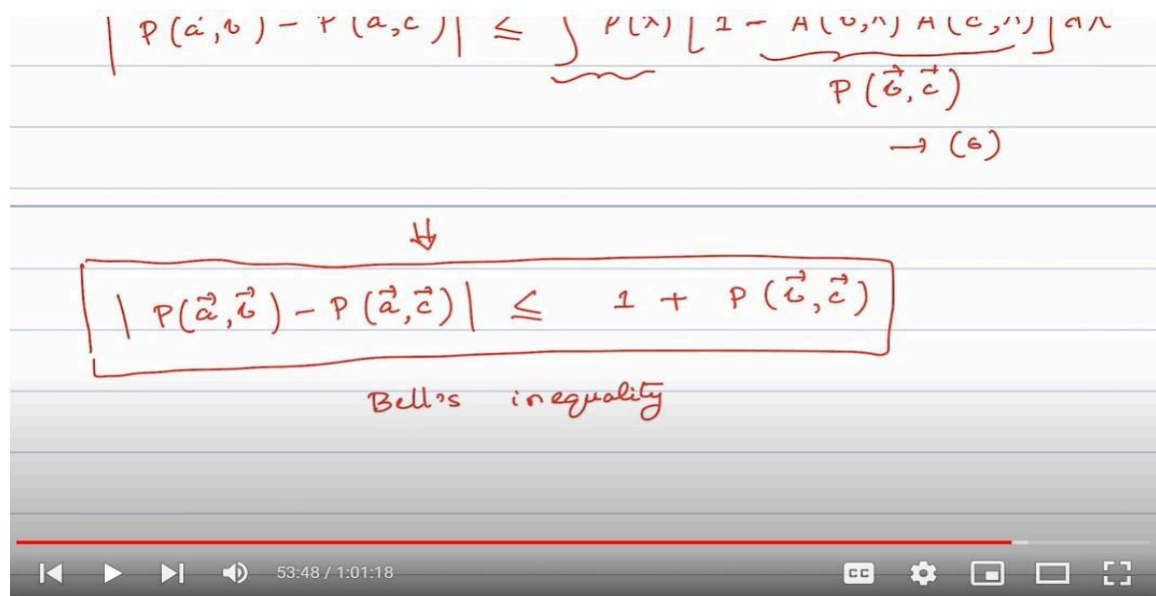 | P(a,b) - P(a,c) | ≤ ∫ ρ(λ) [ 1 - A(b,λ) A(c,λ) ] dλ
P(b⃗,c⃗)
→ (6)
⇓
| P(a⃗,b⃗) - P(a⃗,c⃗) | ≤ 1 + P(b⃗,c⃗)
Bell's inequality
53:48 / 1:01:18 CC